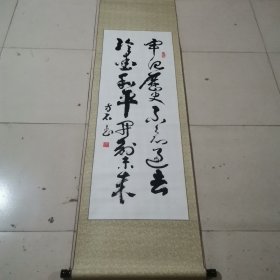 牢记历史不忘过去
珍爱和平开创未来